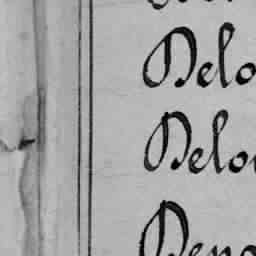 Delo
Delo
Deno